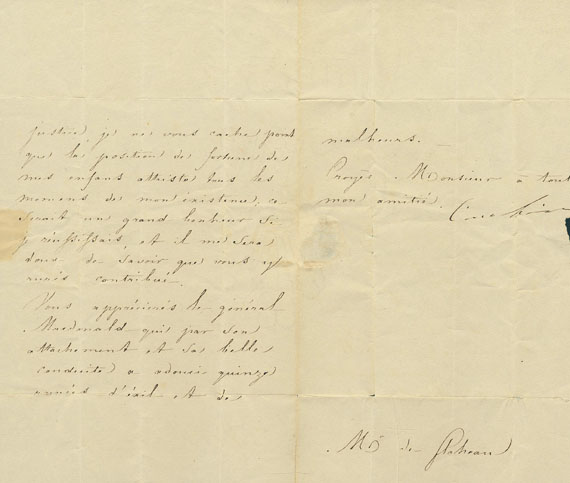 justice, je ne vous cache point
que la position de fortune de
mes enfans attriste tous les
momens de mon existence, ce
serait un grand bonheur si
je réussissais, et il me sera
doux de savoir que vous y
aurés contribué.
Vous apprécierés le général
Macdonald qui par son
attachement et sa belle
conduite a adouci quinze
années d'exil et de
malheurs.
Croyés Monsieur à tout
mon amitié.
Mr de